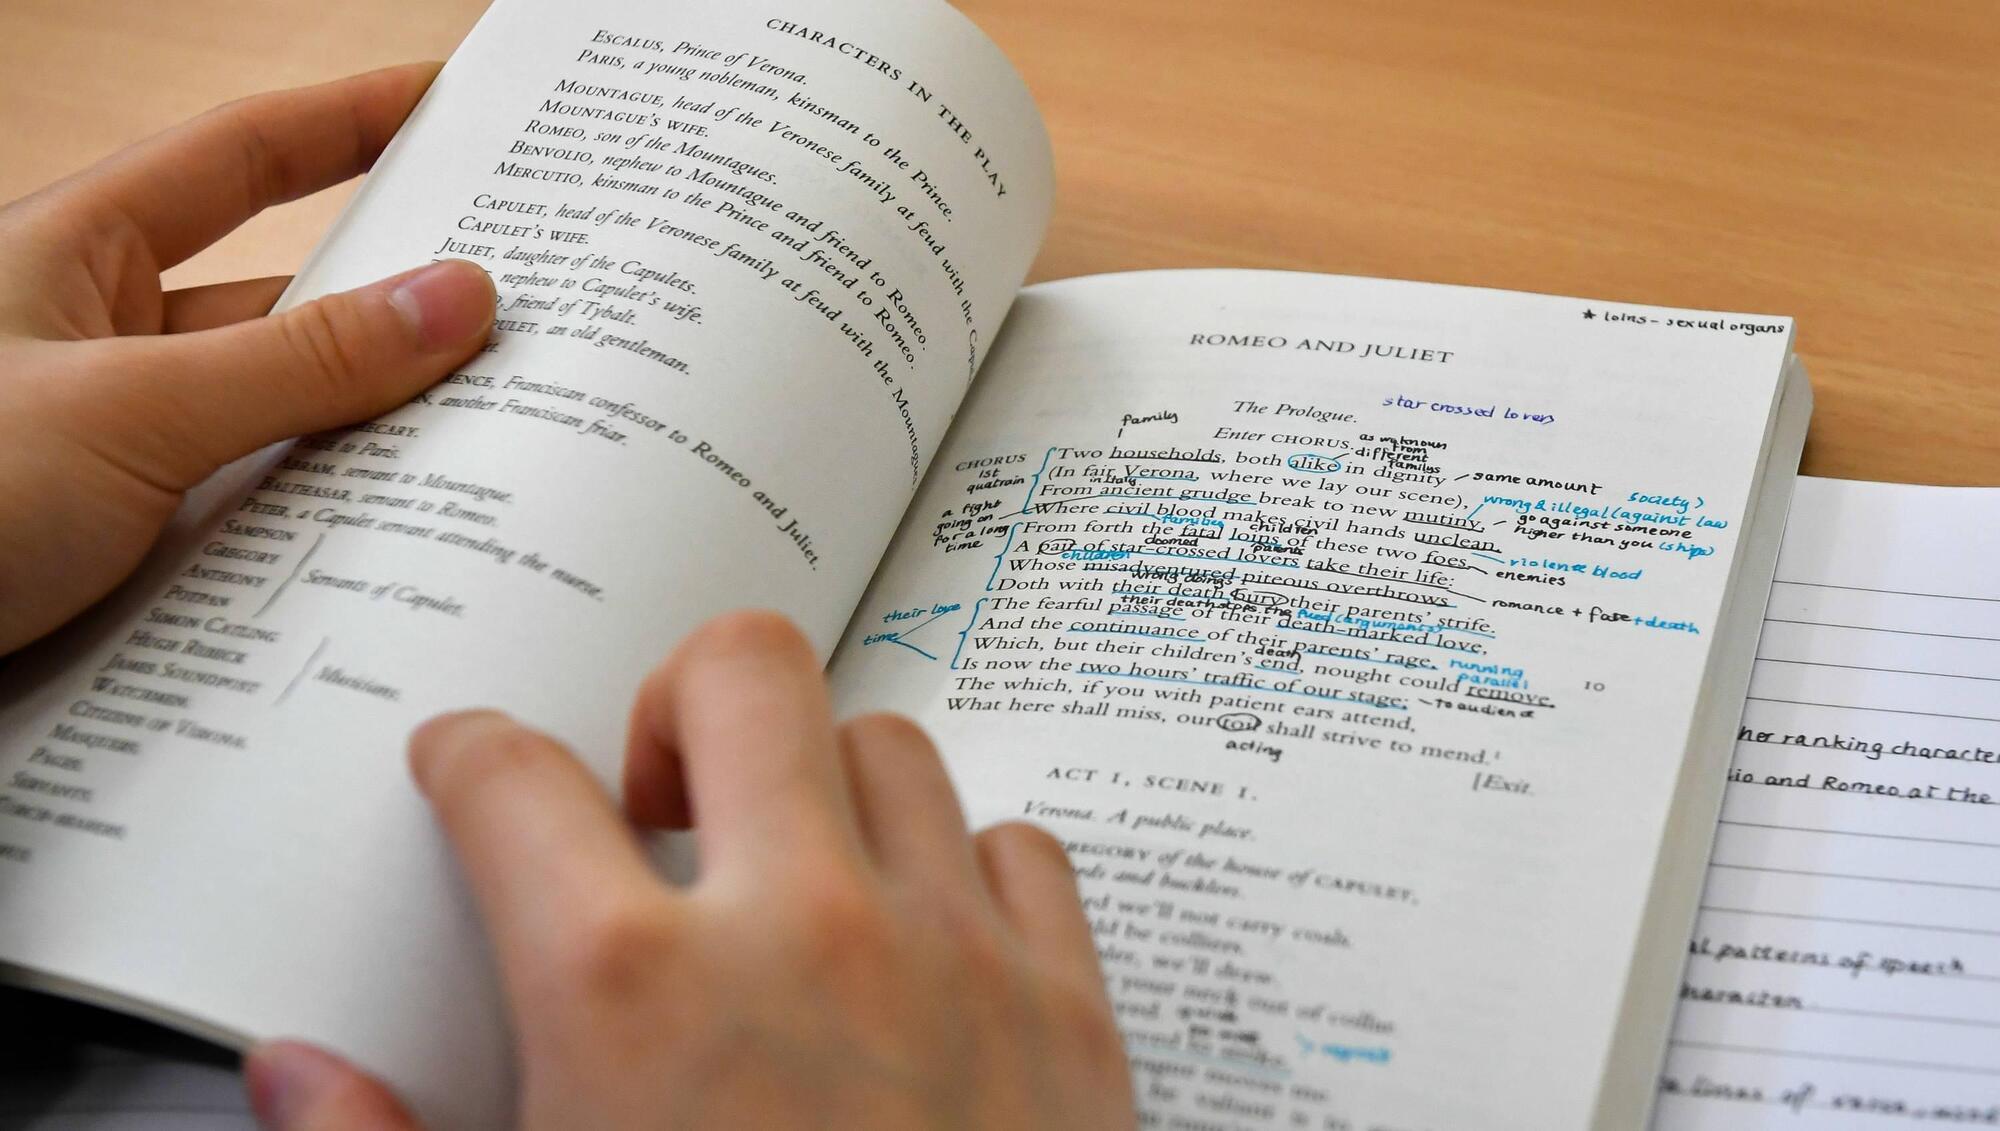 CHARACTERS IN THE PLAY
ESCALUS, Prince of Verona.
PARIS, a young nobleman, kinsman to the Prince.
MOUNTAGUE, head of the Veronese family at feud with the Capul
MOUNTAGUE'S WIFE.
ROMEO, son of the Mountagues.
BENVOLIO, nephew to Mountague and friend to Romeo.
MERCUTIO, kinsman to the Prince and friend to Romeo.
CAPULET, head of the Veronese family at feud with the Mountagues.
CAPULET'S WIFE.
JULIET, daughter of the Capulets.
nephew to Capulet's wife.
friend of Tybalt.
PULET, an old gentleman.
RENCE, Franciscan confessor to Romeo and Juliet.
N, another Franciscan friar.
ECARY.
to Paris.
ABRAM, servant to Mountague.
BALTHASAR, servant to Romeo.
PETER, a Capulet servant attending the nurse.
SAMPSON
GREGORY
ANTHONY
POTPAN
Servants of Capulet.
SIMON CATLING
HUGH REBECK
JAMES SOUNDPOST
Musicians.
WATCHMEN.
CITIZENS OF VERONA.
MASQUERS.
PAGES.
SERVANTS.
★ loins - sexual organs
ROMEO AND JULIET
star crossed lovers
The Prologue.
family
Enter CHORUS.
as we known
from
different
familys
CHORUS
1st
quatrain
Two households, both alike in dignity
same amount
(In fair Verona, where we lay our scene),
in Italy
From ancient grudge break to new mutiny,
wrong & illegal (against law
society)
go against someone
higher than you (ships)
a fight
going on
for a long
time
Where civil blood makes civil hands unclean.
families
children
From forth the fatal loins of these two foes
violence blood
enemies
doomed
parents
A pair of star-crossed lovers take their life:
children
Whose misadventured piteous overthrows
romance + fate + death
wrong doings
Doth with their death bury their parents' strife.
their death stops the fued (arguments)
The fearful passage of their death-marked love,
their love
time
And the continuance of their parents' rage,
death
Which, but their children's end, nought could remove,
running
parallel
10
Is now the two hours' traffic of our stage;
- to audience
The which, if you with patient ears attend,
What here shall miss, our toil shall strive to mend.¹
acting
[Exit.
ACT I, SCENE I.
Verona. A public place.
REGORY of the house of CAPULET,
ds and bucklers.
rd we'll not carry coals.
ld be colliers.
we'll draw.
your neck out of collar.
her ranking character
lio and Romeo at the
al patterns of speech
haracter